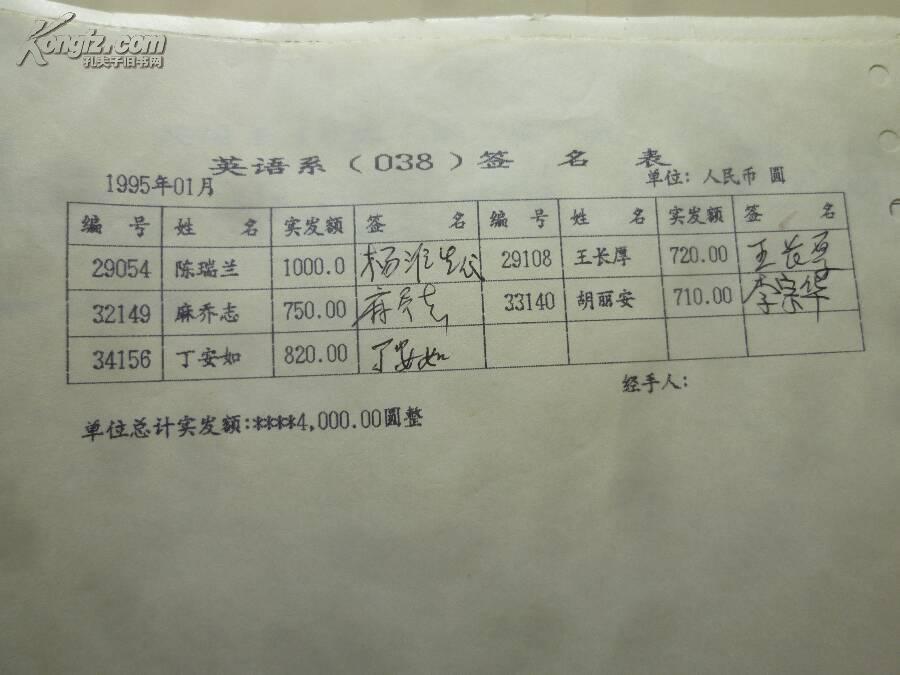 Kongfz.com
孔夫子旧书网
英语系(038)签 名 表
1995年01月 单位：人民币 圆
编 号 姓 名 实发额 签 名 编 号 姓 名 实发额 签 名
29054 陈瑞兰 1000.0 杨淮生代 29108 王长厚 720.00 王长厚
32149 麻乔志 750.00 麻乔志 33140 胡丽安 710.00 李宗华
34156 丁安如 820.00 丁安如
经手人：
单位总计实发额:****4,000.00圆整